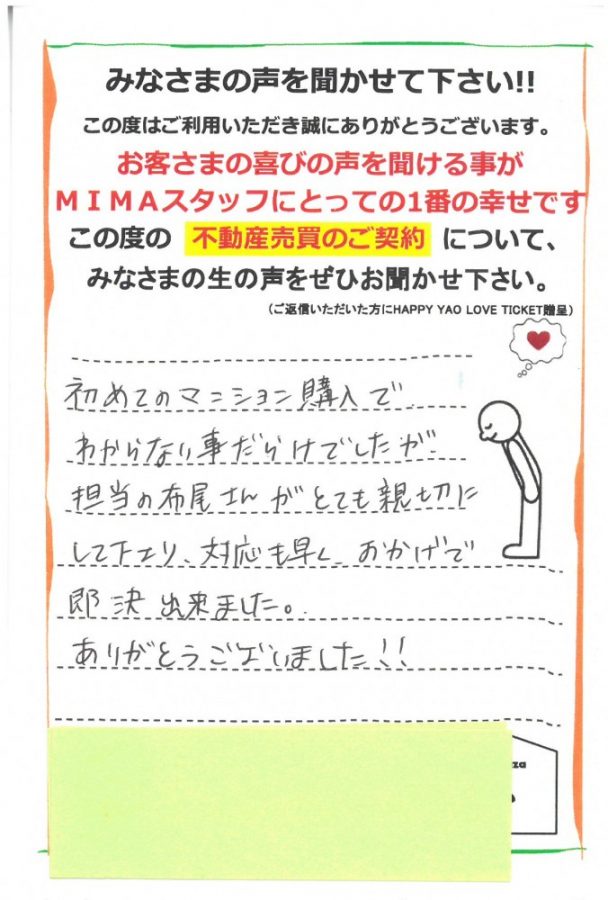 みなさまの声を聞かせて下さい!!
この度はご利用いただき誠にありがとうございます。
お客さまの喜びの声を聞ける事が
ＭＩＭＡスタッフにとっての1番の幸せです
この度の 不動産売買のご契約 について、
みなさまの生の声をぜひお聞かせ下さい。
（ご返信いただいた方にHAPPY YAO LOVE TICKET贈呈）
初めてのマンション購入で
わからない事だらけでしたが
担当の布尾さんがとても親切に
して下さり、対応も早く、おかげで
即決出来ました。
ありがとうございました!!
za